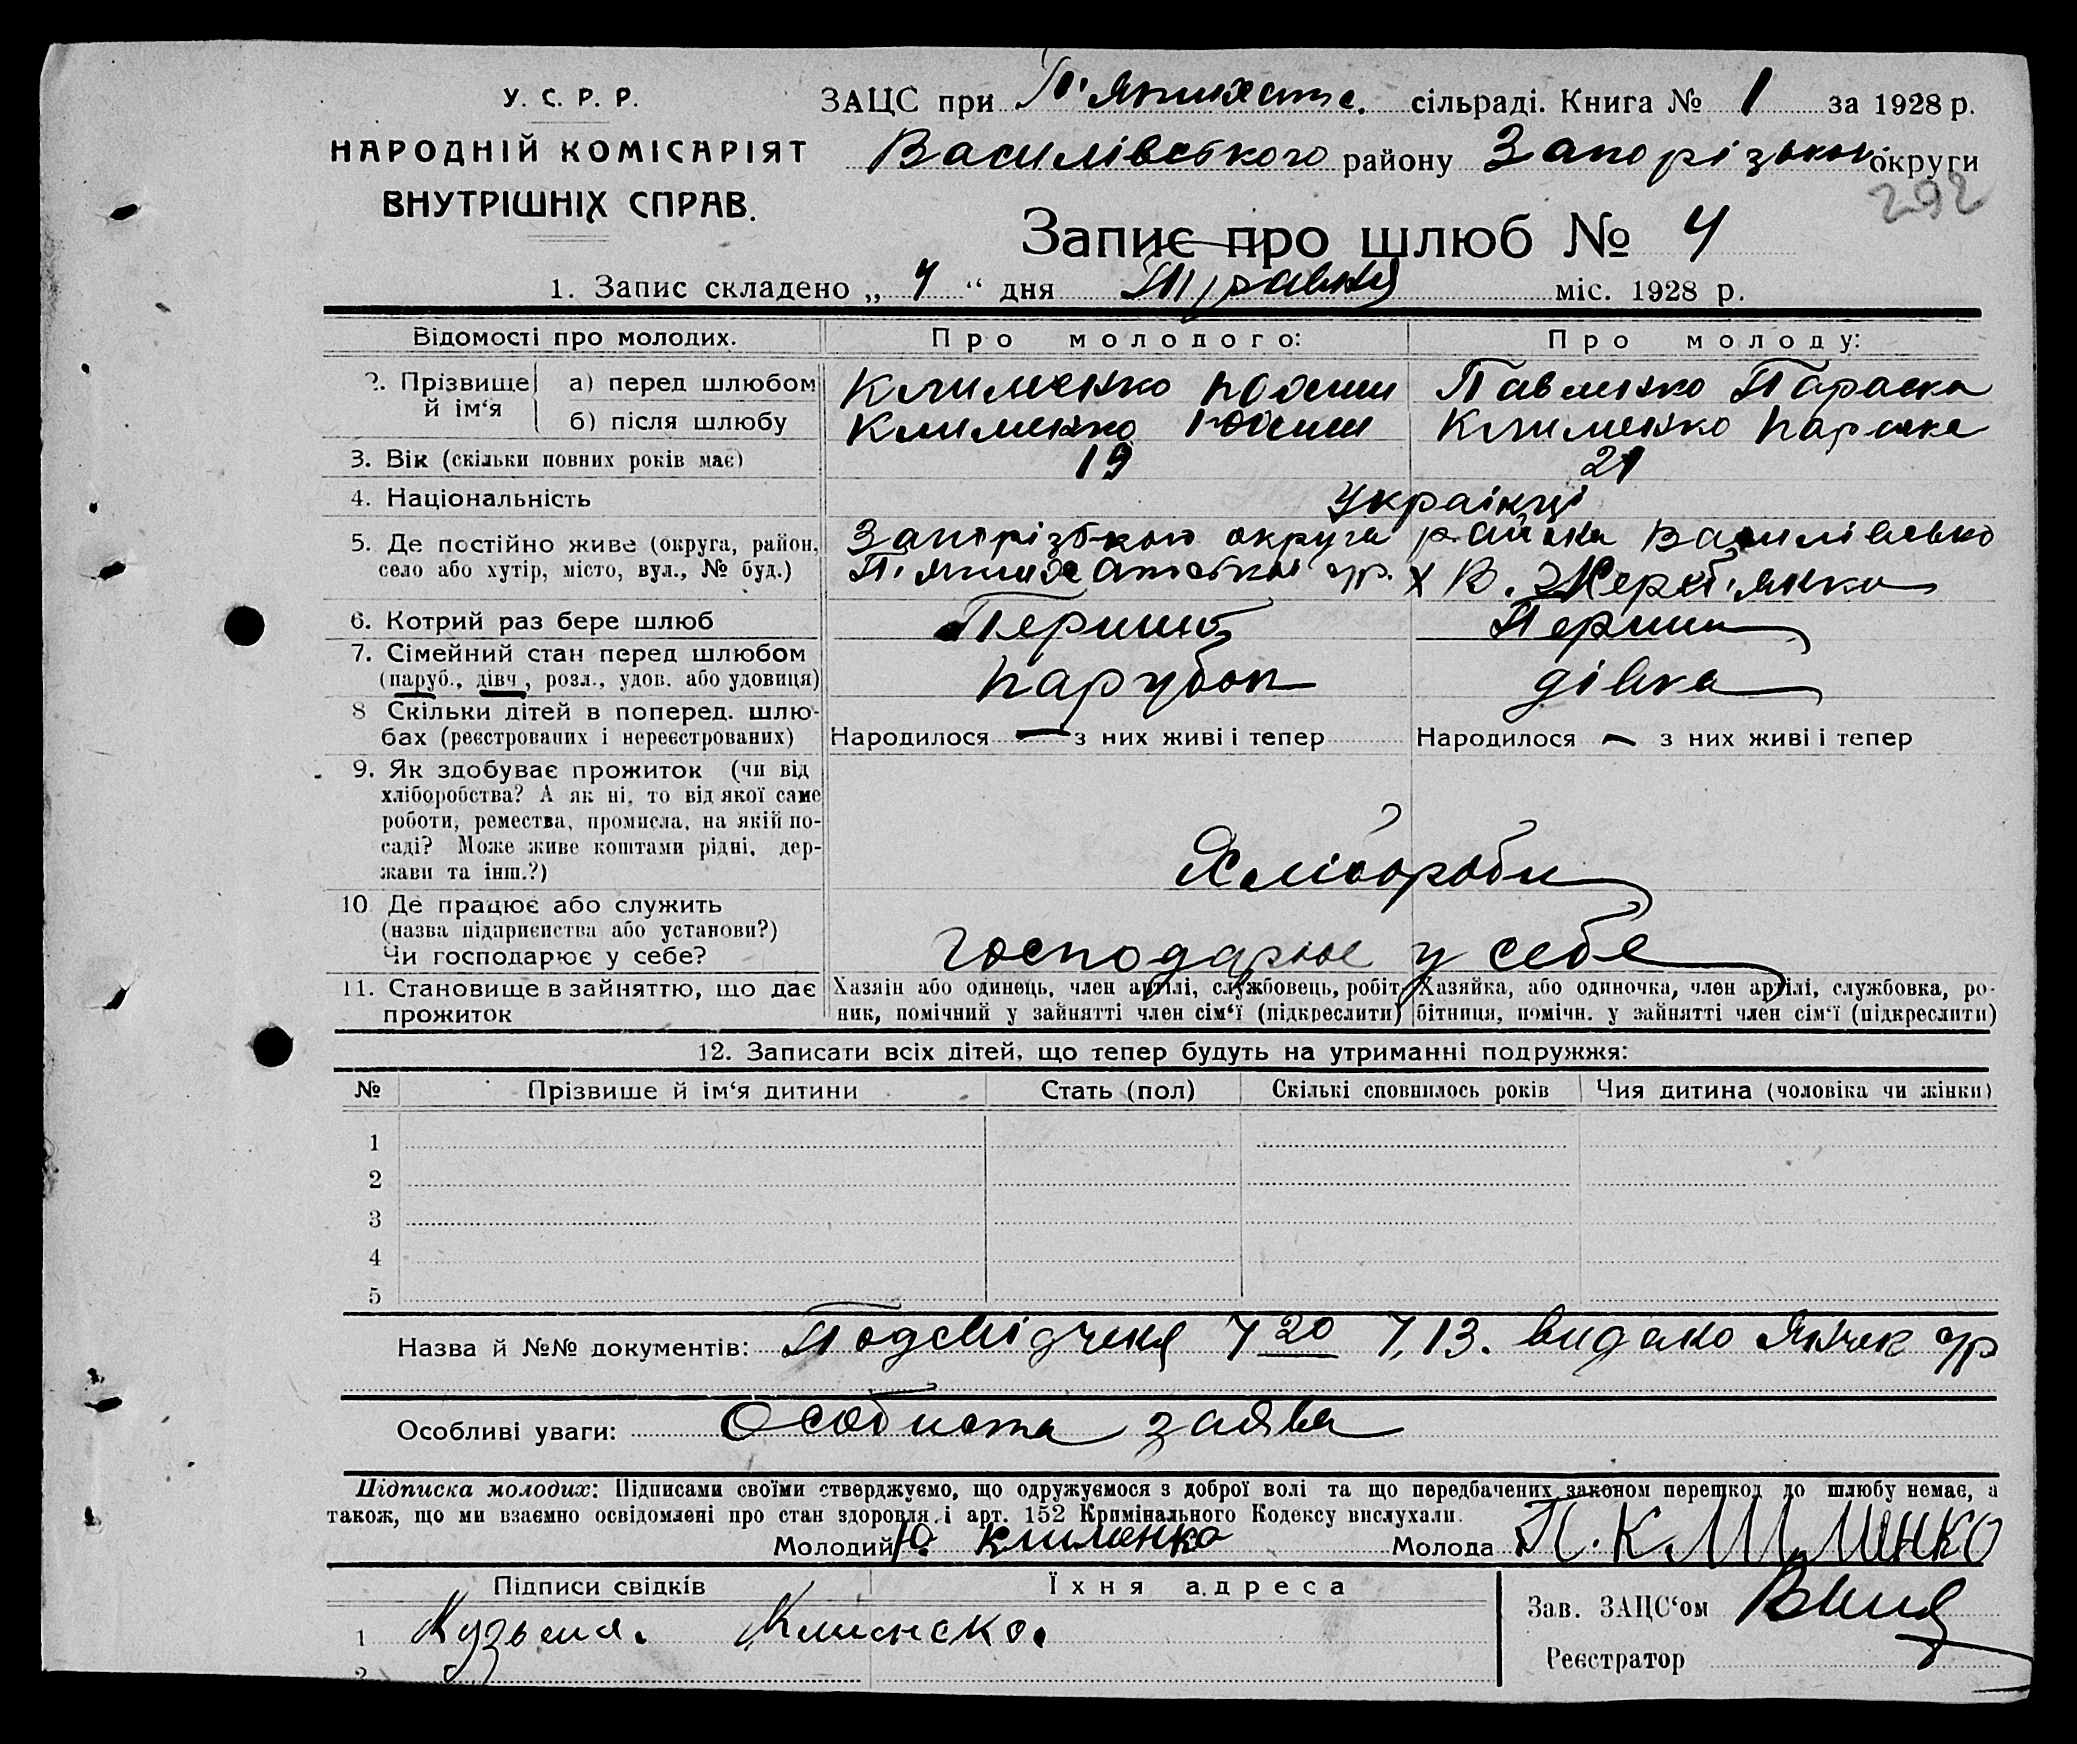 У. С. Р. Р.
НАРОДНІЙ КОМІСАРІЯТ
ВНУТРІШНІХ СПРАВ.
ЗАЦС при П'ятихатс. сільраді. Книга № 1 за 1928 р.
Василівського району Запорізької округи
292
Запис про шлюб № 4
1. Запис складено „ 4 “ дня Травня міс. 1928 р.
Відомості про молодих.
Про молодого:
Про молоду:
2. Прізвище й ім‘я
а) перед шлюбом
Клименко
Павленко Параска
б) після шлюбу
Клименко
Клименко Параска
3. Вік (скільки повних років має)
19
21
4. Національність
Українці
5. Де постійно живе (округа, район,
село або хутір, місто, вул., № буд.)
Запорізької округи района Василівсько
П'ятихатської с/р. х В. Жереб'янка
6. Котрий раз бере шлюб
Перший
Перший
7. Сімейний стан перед шлюбом
(паруб., дівч., розл., удов. або удовиця)
парубок
дівка
8 Скільки дітей в поперед. шлю-
бах (реєстрованих і нереєстрованих)
Народилося — з них живі і тепер
Народилося — з них живі і тепер
9. Як здобуває прожиток (чи від
хліборобства? А як ні, то від якої саме
роботи, ремества, промисла, на якій по-
саді? Може живе коштами рідні, дер-
жави та інш.?)
Хлібороби
10 Де працює або служить
(назва підприєиства або установи?)
Чи господарює у себе?
господарює у себе
11. Становище в зайняттю, що дає
прожиток
Хазяін або одинець, член артілі, службовець, робіт-
ник, помічний у зайнятті член сім‘ї (підкреслити)
Хазяйка, або одиночка, член артілі, службовка, ро-
бітниця, помічн. у зайнятті член сім‘ї (підкреслити)
12. Записати всіх дітей, що тепер будуть на утриманні подружжя:
№ Прізвише й ім‘я дитини Стать (пол) Скількі сповнилось років Чия дитина (чоловіка чи жінки)
1
2
3
4
5
Назва й №№ документів: 7 20 7, 13. видано с/р
Особливі уваги: Особиста заява
Підписка молодих: Підписами своїми стверджуємо, що одружуємося з доброї волі та що передбачених законом перешкод до шлюбу немає, а
також, що ми взаємно освідомлені про стан здоровля і арт. 152 Кримінального Кодексу вислухали.
Молодий Ю. Клименко Молода П. Клименко
Підписи свідків Їхня адреса
1 Кузьма.
2
Зав. ЗАЦС‘ом
Реєстратор